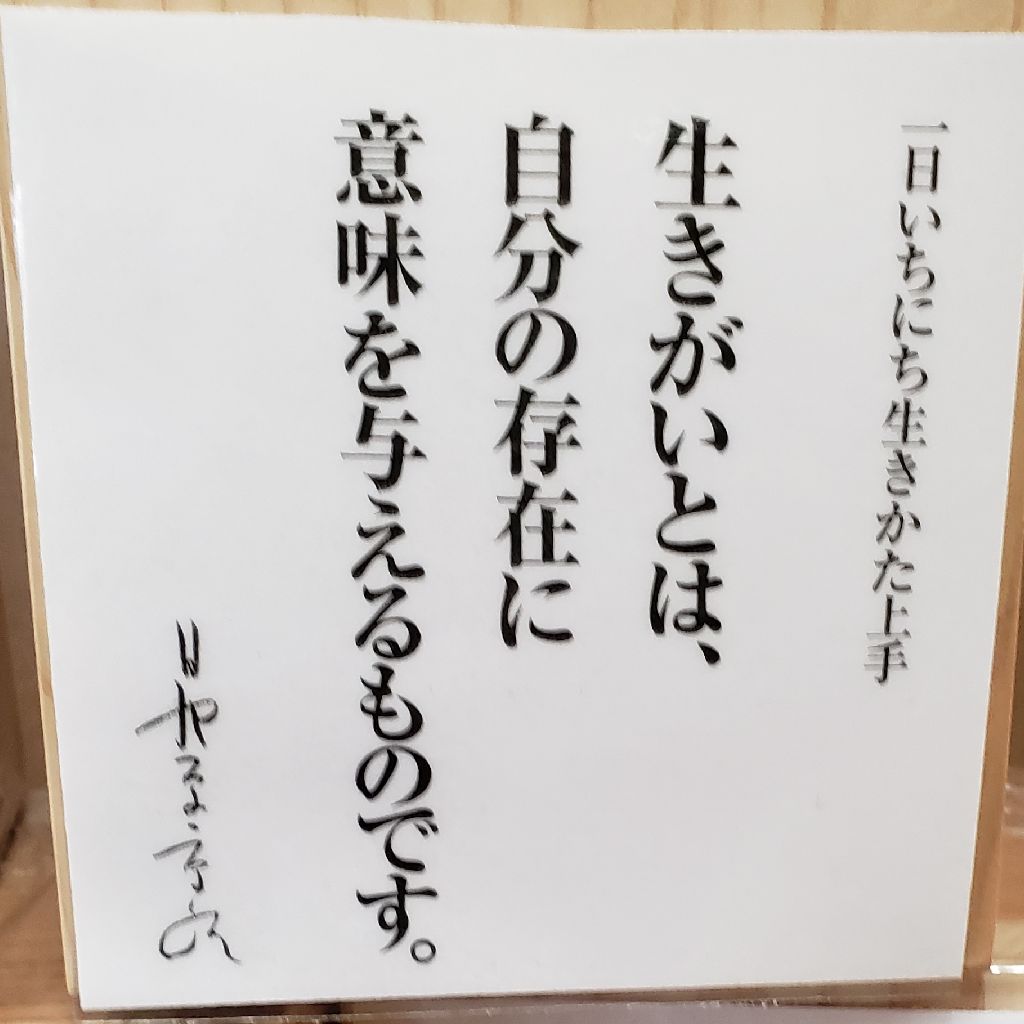 一日いちにち生きかた上手
生きがいとは、
自分の存在に
意味を与えるものです。